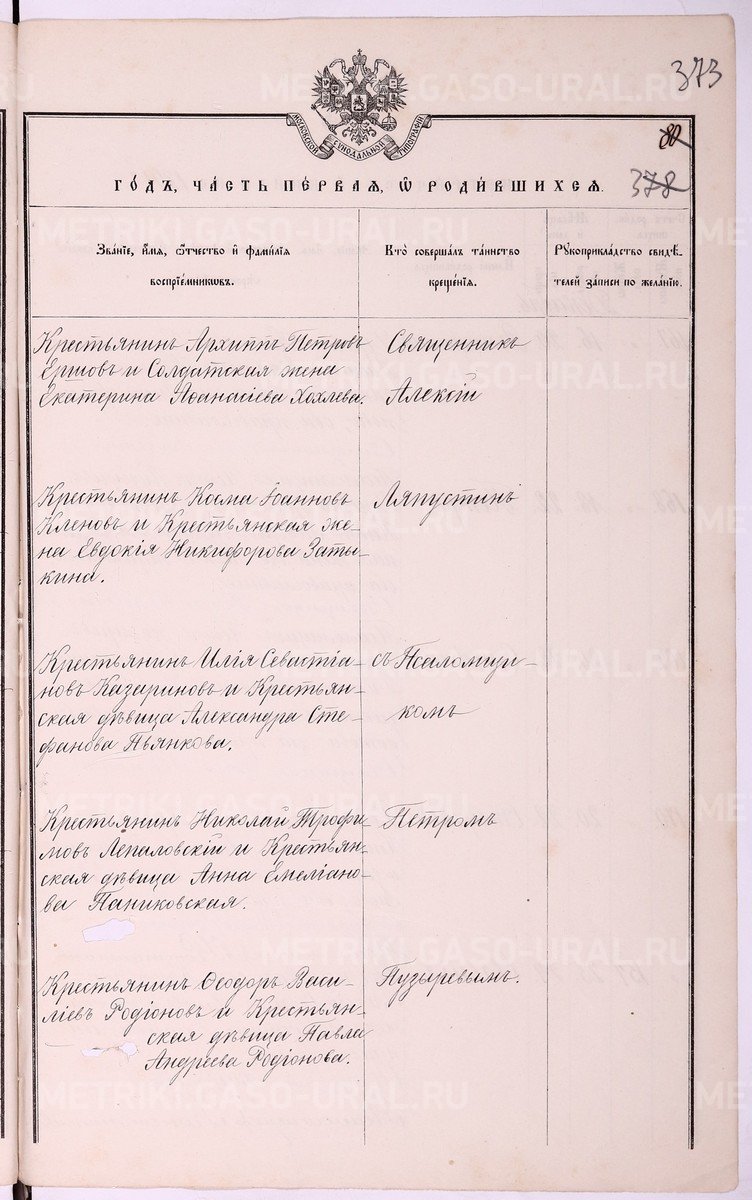 373
МОСКОВСКОЙ СѴНОДАЛЬНОЙ ТИПОГРАФІИ
80
378
ГО́ДЪ, ЧА́СТЬ ПЕ́РВАЯ, Ѽ РОДИ́ВШИХСЯ.
Зва́нїе, и́мя, ѻ҆́тчество и҆ фами́лїя
воспрїе́мникѡвъ.
Кто̀ соверша́лъ та́инство
креще́нїя.
Рꙋкоприкла́дство свидѣ́-
телей за́писи по жела́нїю.
Крестьянинъ Архиппъ Петровъ
Ершовъ и Солдатская жена
Екатерина Аѳанасіева Хохлева.
Священникъ
Алексій
Крестьянинъ Косма Іоанновъ
Кленовъ и Крестьянская же-
на Евдокія Никифорова Заты-
кина.
Ляпустинъ
Крестьянинъ Илія Севастіа-
новъ Казариновъ и Крестьян-
ская дѣвица Александра Сте-
фанова Пьянкова.
съ Псаломщи-
комъ
Крестьянинъ Николай Трофи-
мовъ Лепаловскій и Крестьян-
ская дѣвица Анна Емеліано-
ва Паниковская.
Петромъ
Крестьянинъ Ѳеодоръ Васи-
ліевъ Родіоновъ и Крестьян-
ская дѣвица Павла
Андреева Родіонова.
Пузыревымъ.
METRIKI.GASO-URAL.RU